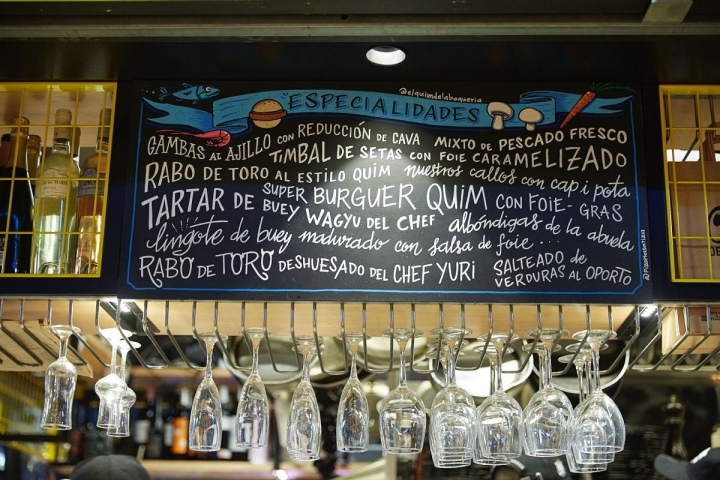 @elquimdelaboqueria
ESPECIALIDADES
GAMBAS AL AJILLO CON REDUCCIÓN DE CAVA MIXTO DE PESCADO FRESCO
TIMBAL DE SETAS CON FOIE CARAMELIZADO
RABO DE TORO AL ESTILO QUIM nuestros callos con cap i pota
SUPER BURGUER QUIM CON FOIE-GRAS
TARTAR DE BUEY WAGYU DEL CHEF albóndigas de la abuela
lingote de buey madurado con salsa de foie...
RABO DE TORO DESHUESADO DEL CHEF YURI SALTEADO de VERDURAS AL OPORTO